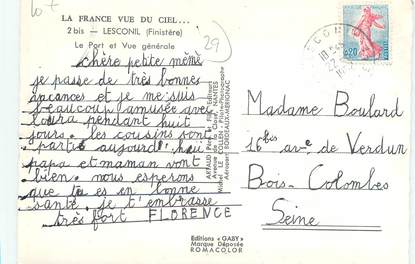 lot
LA FRANCE VUE DU CIEL...
2 bis - LESCONIL (Finistère)
Le Port et Vue générale
29
chère petite mémé
je passe de très bonnes
vacances et je me suis
beaucoup amusée avec
Laura pendant huit
jours. les cousins sont
partis aujourd'hui
papa et maman vont
bien. nous espérons
que tu es en bonne
santé. je t'embrasse
très fort FLORENCE
ARTAUD Père et Fils, Editeurs
NANTES
Michel LE COLLEN - Pilote-Photographe
Aéroport BORDEAUX-MERIGNAC
Editions "GABY"
Marque Déposée
ROMACOLOR
0,20
Madame Boulard
16bis av de Verdun
Bois-Colombes
Seine